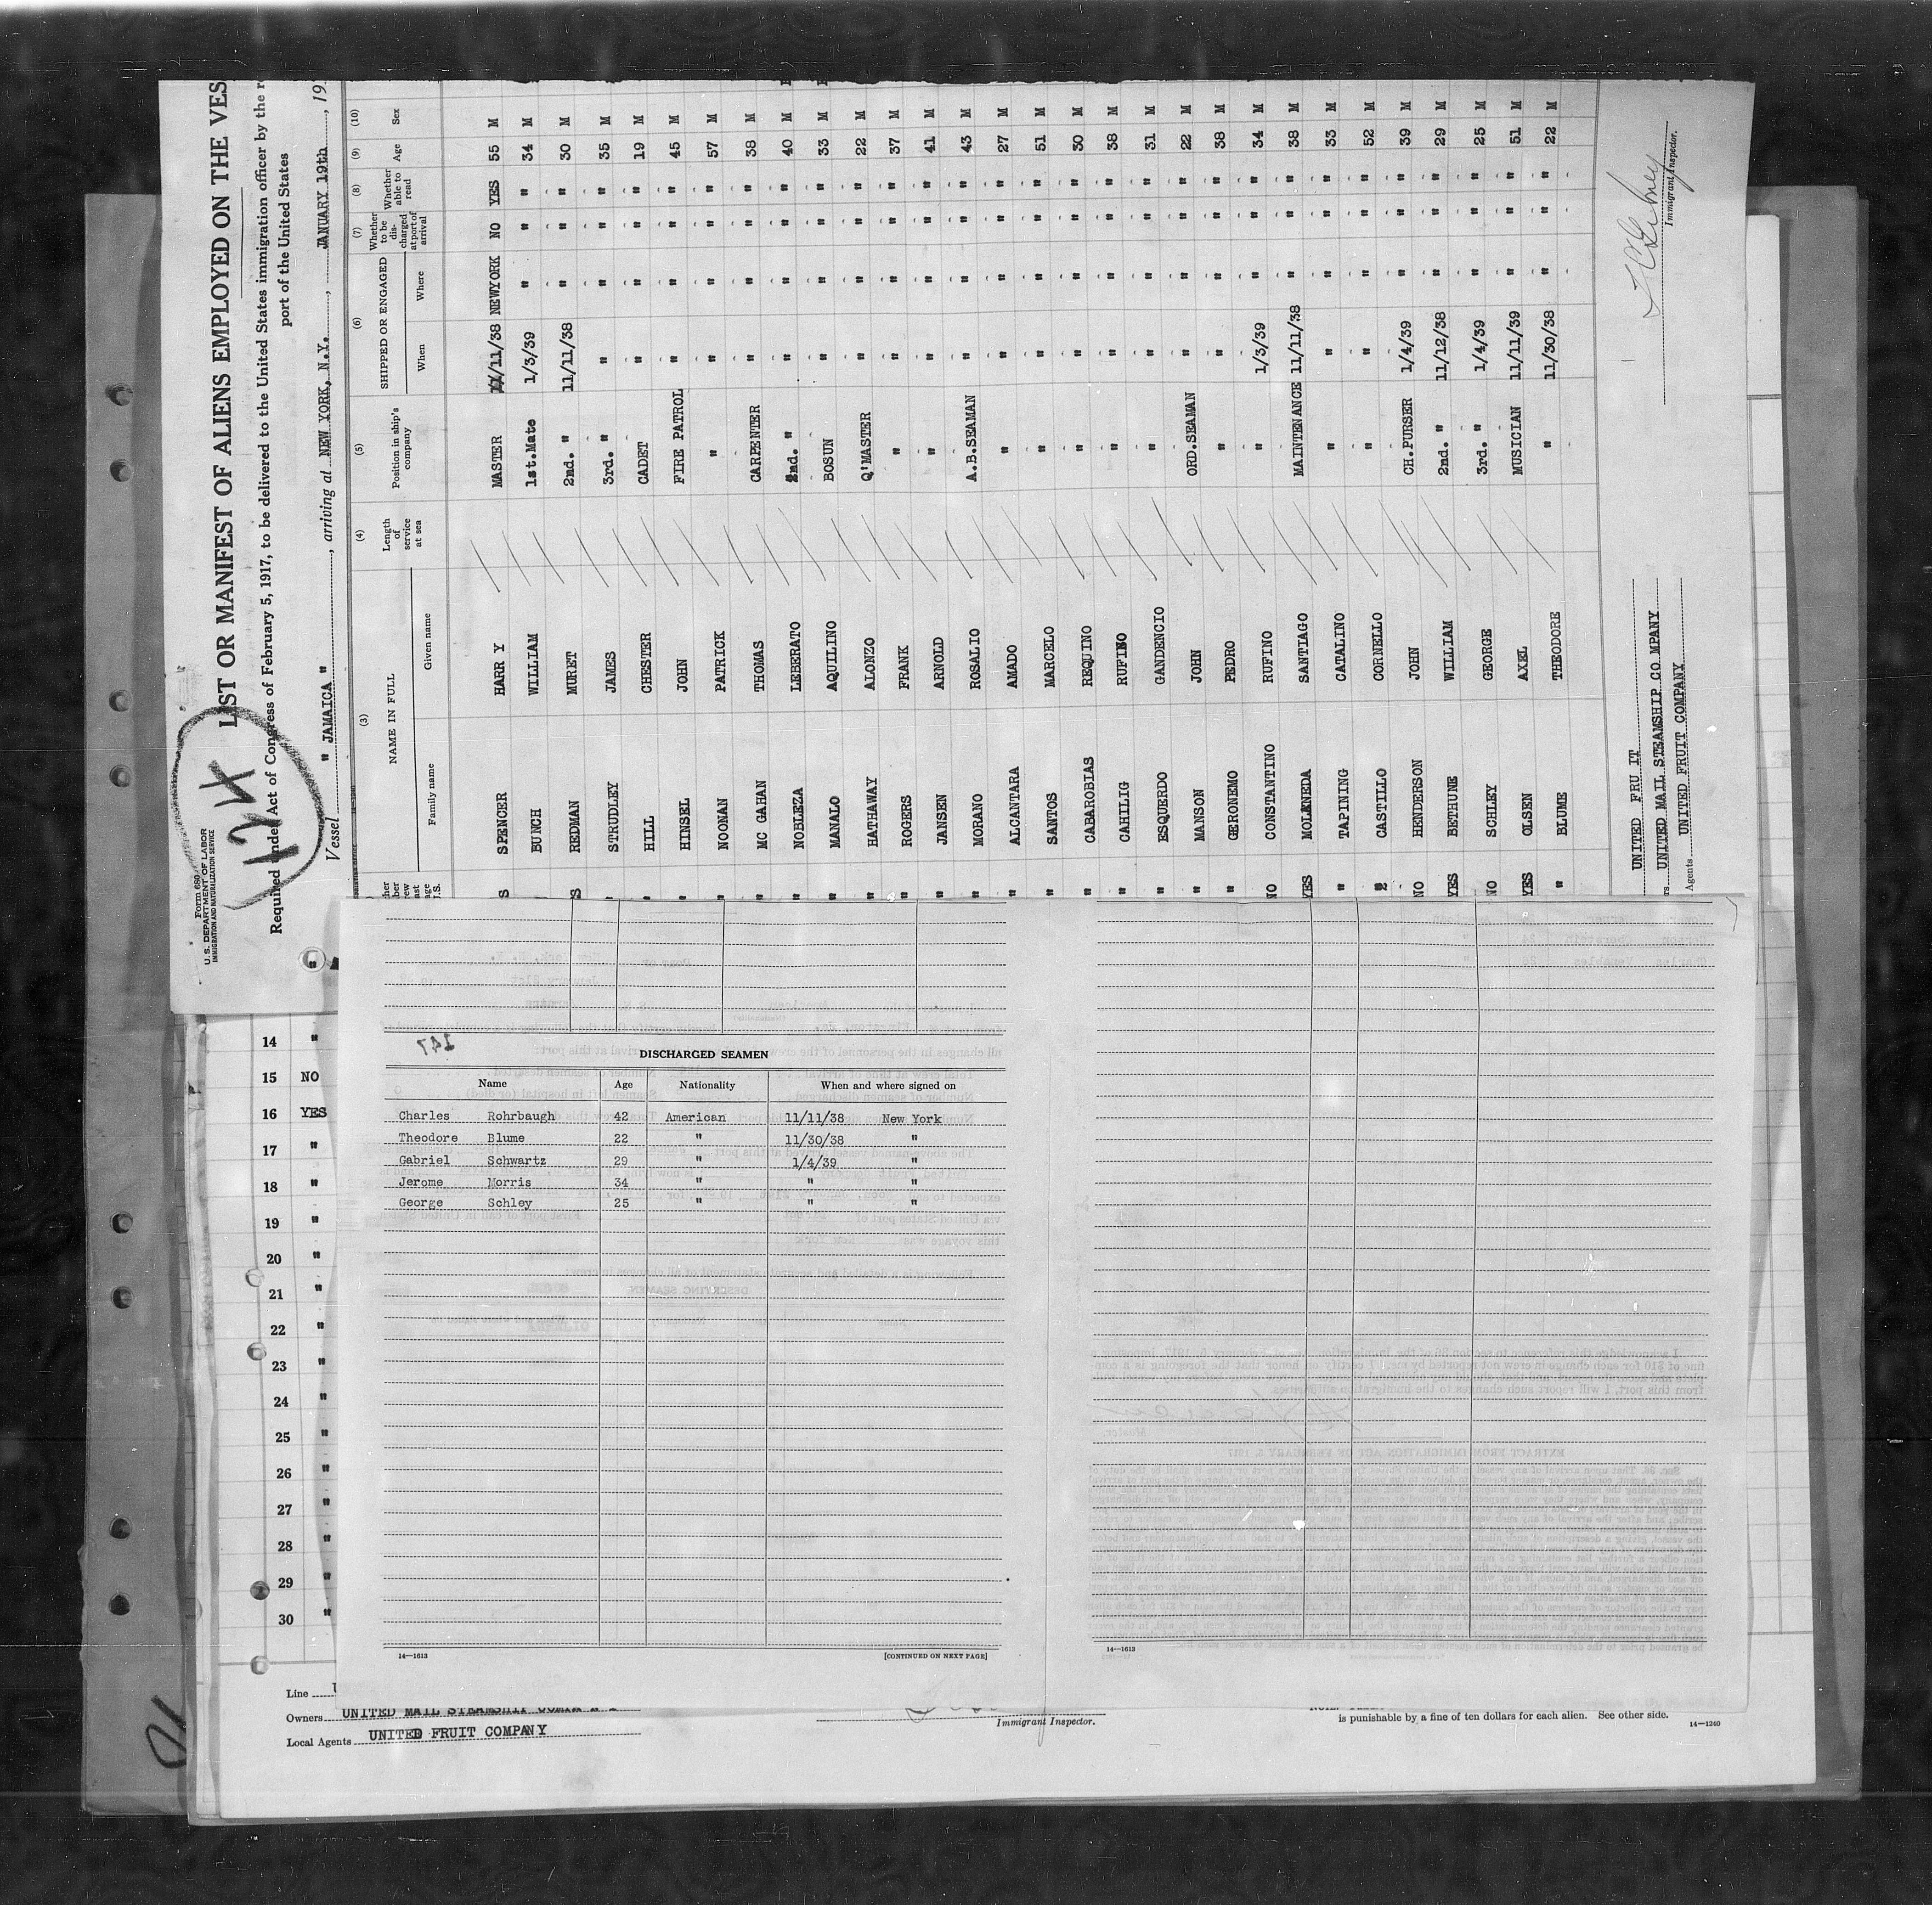 Form 680
U. S. DEPARTMENT OF LABOR
IMMIGRATION AND NATURALIZATION SERVICE
124
LIST OR MANIFEST OF ALIENS EMPLOYED ON THE VES
Required under Act of Congress of February 5, 1917, to be delivered to the United States immigration officer by the r
port of the United States
Vessel " JAMAICA " , arriving at NEW YORK, N.Y. , JANUARY 19th , 19
(3) (4) (5) (6) (7) (8) (9) (10)
NAME IN FULL
Family name Given name
Length of service at sea
Position in ship's company
SHIPPED OR ENGAGED
When Where
Whether to be discharged at port of arrival
Whether able to read
Age
Sex
SPENCER HARR Y MASTER 11/11/38 NEWYORK NO YES 55 M
BUNCH WILLIAM 1st.Mate 1/3/39 " " " 34 M
REDMAN MURET 2nd. " 11/11/38 " " " 30 M
STRUDLEY JAMES 3rd. " " " " " 35 M
" HILL CHESTER CADET " " " " 19 M
" HINSEL JOHN FIRE PATROL " " " " 45 M
" NOONAN PATRICK " " " " " 57 M
" MC GAHAN THOMAS CARPENTER " " " " 38 M
" NOBLEZA LEBERATO 2nd. " " " " " 40 M
" MANALO AQUILINO BOSUN " " " " 33 M
" HATHAWAY ALONZO Q'MASTER " " " " 22 M
" ROGERS FRANK " " " " " 37 M
" JANSEN ARNOLD " " " " " 41 M
" MORANO ROSALIO A.B.SEAMAN " " " " 43 M
" ALCANTARA AMADO " " " " " 27 M
" SANTOS MARCELO " " " " " 51 M
" CABAROBIAS REQUINO " " " " " 30 M
" CAHILIG RUFINO " " " " " 38 M
" ESQUERDO GANDENCIO " " " " " 31 M
" MANSON JOHN ORD.SEAMAN " " " " 22 M
" GERONEMO PEDRO " " " " " 38 M
NO CONSTANTINO RUFINO " 1/3/39 " " " 34 M
YES MOLENEDA SANTIAGO MAINTENANCE 11/11/38 " " " 38 M
" TAPINING CATALINO " " " " " 33 M
" CASTILLO CORNELLO " " " " " 52 M
NO HENDERSON JOHN CH.PURSER 1/4/39 " " " 39 M
YES BETHUNE WILLIAM 2nd. " 11/12/38 " " " 29 M
NO SCHLEY GEORGE 3rd. " 1/4/39 " " " 25 M
YES OLSEN AXEL MUSICIAN 11/11/39 " " " 51 M
" BLUME THEODORE " 11/30/38 " " " 22 M
UNITED FRU IT
UNITED MAIL STEAMSHIP CO MPANY
Agents UNITED FRUIT COMPANY
Immigrant Inspector.
14 "
15 NO
16 YES
17 "
18 "
19 "
20 "
21 "
22 "
23 "
24 "
25 "
26 "
27 "
28 "
29 "
30 "
147
DISCHARGED SEAMEN
Name Age Nationality When and where signed on
Charles Rohrbaugh 42 American 11/11/38 New York
Theodore Blume 22 " 11/30/38 "
Gabriel Schwartz 29 " 1/4/39 "
Jerome Morris 34 " " "
George Schley 25 " " "
14—1613 [CONTINUED ON NEXT PAGE]
14—1613
Line
Owners UNITED MAIL STEAMSHIP
Local Agents UNITED FRUIT COMPANY
Immigrant Inspector.
is punishable by a fine of ten dollars for each alien. See other side.
14—1240